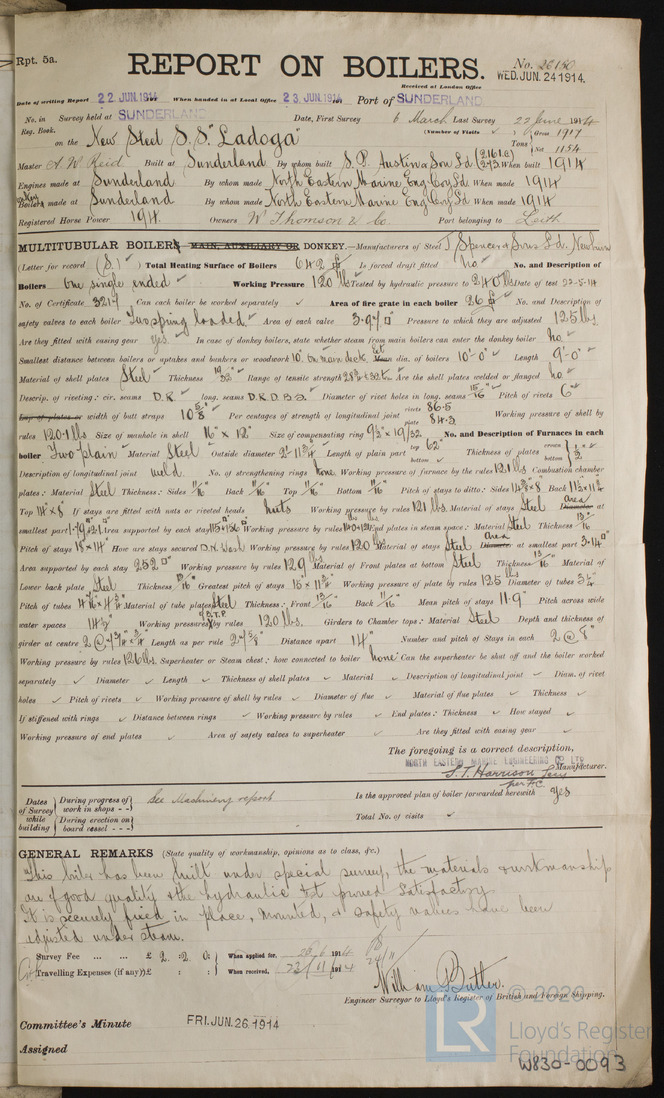 Rpt. 5a.
REPORT ON BOILERS.
No. 26150
Received at London Office WED. JUN. 24 1914.
Date of writing Report 22 JUN. 1914 When handed in at Local Office 23 JUN. 1914 Port of SUNDERLAND
No. in Reg. Book. Survey held at SUNDERLAND Date, First Survey 6 March Last Survey 22 June 1914
(Number of Visits ) Gross 1917
on the New Steel S.S. "Ladoga" Tons Net 1154
Master A. W. Reid Built at Sunderland By whom built S. P. Austin & Son Ld When built 1914
Engines made at Sunderland By whom made North Eastern Marine Eng Coy Ld When made 1914
Boilers made at Sunderland By whom made North Eastern Marine Eng Coy Ld When made 1914
Registered Horse Power 194 Owners W Thomson & Co. Port belonging to Leith
MULTITUBULAR BOILERS MAIN, AUXILIARY OR DONKEY.—Manufacturers of Steel J Spencer & Sons Ld. Newburn
(Letter for record (S) ) Total Heating Surface of Boilers 642 Is forced draft fitted no No. and Description of
Boilers One single ended Working Pressure 120 lbs Tested by hydraulic pressure to 240 lbs Date of test 22-5-14
No. of Certificate 3217 Can each boiler be worked separately Area of fire grate in each boiler 26 No. and Description of
safety valves to each boiler Two spring loaded. Area of each valve 3.970" Pressure to which they are adjusted 125 lbs
Are they fitted with easing gear yes. In case of donkey boilers, state whether steam from main boilers can enter the donkey boiler no.
Smallest distance between boilers or uptakes and bunkers or woodwork 10" on main deck. Mean dia. of boilers 10'-0" Length 9'-0"
Material of shell plates Steel Thickness 19/32" Range of tensile strength Are the shell plates welded or flanged no
Descrip. of riveting: cir. seams D.R. long. seams D.R.D.B.S. Diameter of rivet holes in long. seams 15/16" Pitch of rivets 6"
Lap of plates or width of butt straps 10 5/8" Per centages of strength of longitudinal joint rivets 86.5 plate 84.3 Working pressure of shell by
rules 120.1 lbs Size of manhole in shell 16" x 12" Size of compensating ring 9 1/2 x 19/32 No. and Description of Furnaces in each
boiler Two plain Material Steel Outside diameter 2'-11 3/4" Length of plain part top 62" bottom Thickness of plates crown bottom 1/2"
Description of longitudinal joint weld. No. of strengthening rings none Working pressure of furnace by the rules 121 lbs Combustion chamber
plates: Material Steel Thickness: Sides 11/16" Back 11/16" Top 11/16" Bottom 11/16" Pitch of stays to ditto: Sides 14 3/4 x 8" Back 11 1/2 x 11 1/2
Top 14" x 8" If stays are fitted with nuts or riveted heads nuts Working pressure by rules 121 lbs. Material of stays Steel Diameter Area at
smallest part Area supported by each stay Working pressure by rules End plates in steam space: Material Steel Thickness 13/16"
Pitch of stays 18 x 14" How are stays secured D.N. Wash Working pressure by rules 120 Material of stays Steel Diameter Area at smallest part 3.14"
Area supported by each stay 252" Working pressure by rules 129 lbs Material of Front plates at bottom Steel Thickness 13/16" Material of
Lower back plate Steel Thickness 13/16" Greatest pitch of stays 15" x 11 3/4" Working pressure of plate by rules 125 lbs Diameter of tubes 3 1/2"
Pitch of tubes Material of tube plates Steel Thickness: Front 13/16" Back 11/16" Mean pitch of stays 11.9" Pitch across wide
water spaces 14 1/2" Working pressures by rules 120 lbs. Girders to Chamber tops: Material Steel Depth and thickness of
girder at centre Length as per rule 2'-7 5/8" Distance apart 14" Number and pitch of Stays in each 2 @ 8"
Working pressure by rules 126 lbs. Superheater or Steam chest; how connected to boiler none Can the superheater be shut off and the boiler worked
separately Diameter Length Thickness of shell plates Material Description of longitudinal joint Diam. of rivet
holes Pitch of rivets Working pressure of shell by rules Diameter of flue Material of flue plates Thickness
If stiffened with rings Distance between rings Working pressure by rules End plates: Thickness How stayed
Working pressure of end plates Area of safety valves to superheater Are they fitted with easing gear
The foregoing is a correct description,
NORTH EASTERN MARINE ENGINEERING CO LTD
S. T. Harrison Secy Manufacturer.
Dates of Survey while building During progress of work in shops - - See Machinery report Is the approved plan of boiler forwarded herewith yes
During erection on board vessel - - - Total No. of visits
GENERAL REMARKS (State quality of workmanship, opinions as to class, &c.)
This boiler has been built under special survey, the materials & workmanship
are of good quality & the hydraulic test proved satisfactory.
It is securely fixed in place, mounted, & safety valves have been
adjusted under steam.
Survey Fee ... ... £ 2 : 2 0 : When applied for, 26/6 1914
Travelling Expenses (if any) £ : : When received, 1914
William Butler
Engineer Surveyor to Lloyd's Register of British and Foreign Shipping.
Committee's Minute FRI. JUN. 26 1914
Assigned
© 2020
LR
Lloyd's Register
Foundation
W830-0093